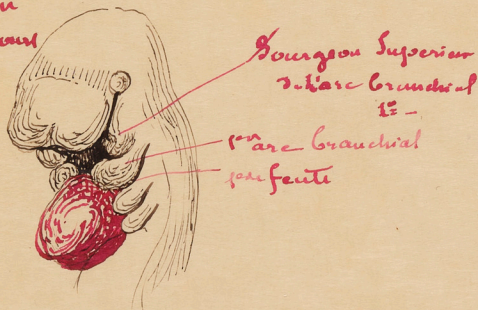 Bourgeon Superieur
de l'arc branchial
1er
1er arc branchial
1ere fente